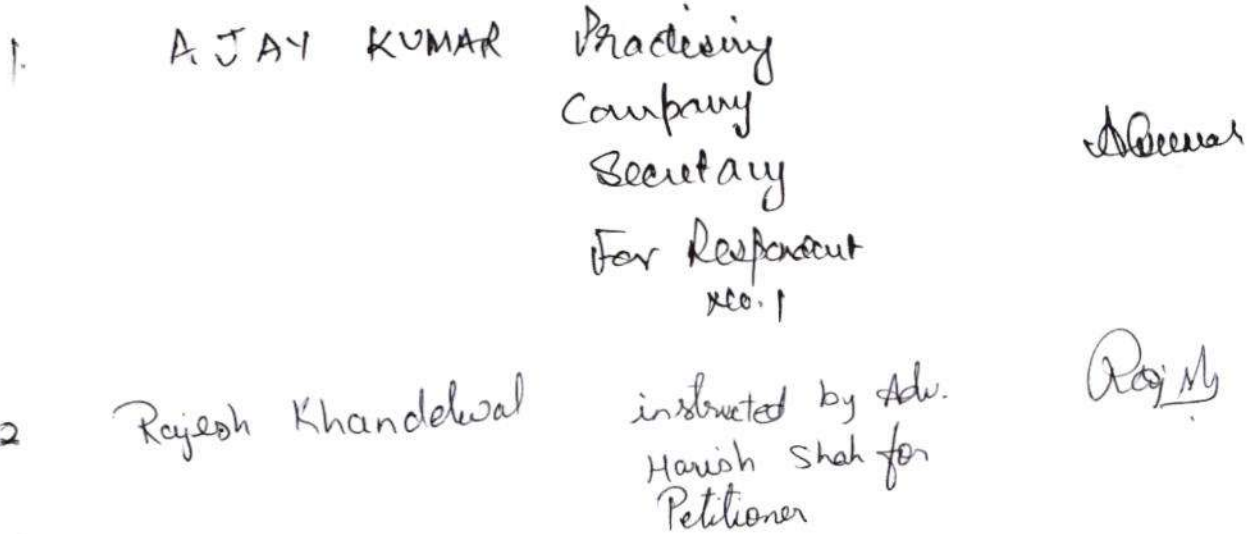 1. AJAY KUMAR Practising
Company
Secretary
For Respondent
No. 1
AKumar
2 Rajesh Khandelwal instructed by Adv.
Harish Shah for
Petitioner